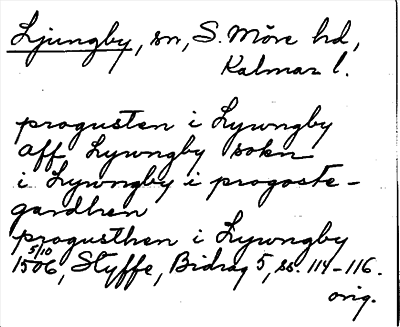 Ljungby, sn, S. Möre hd,
Kalmar l.
progusten i Lywngby
aff Lywngby sokn
i Lywngby i progoste-
gardhen
progusthen i Lywngby
5/10
1506, Styffe, Bidrag 5, ss. 114-116.
orig.